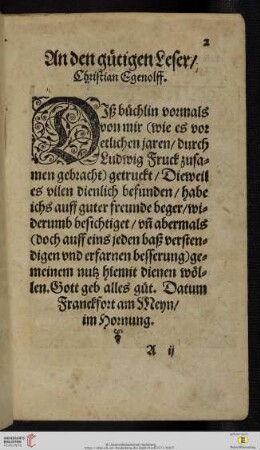 2
An den gütigen Leser/
Christian Egenolff.
DIß büchlin vormals
von mir (wie es vor
etlichen jaren/durch
Ludwig Fruck zusa-
men gebracht) getruckt/Dieweil
es vilen dienlich befunden/habe
ichs auff guter freunde beger/wi-
derumb besichtiget/vñ abermals
(doch auff eins jeden baß versten-
digen vnd erfarnen besserung) ge-
meinem nutz hiemit dienen wöl-
len. Gott geb alles gůt. Datum
Franckfort am Meyn/
im Hornung.
A ij